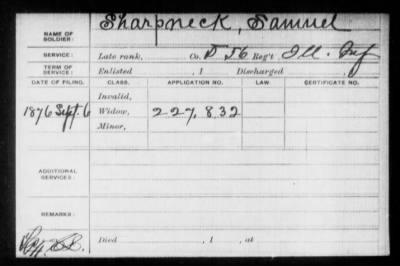 NAME OF SOLDIER: Sharpneck, Samuel
SERVICE: Late rank, Co. D 56 Reg't Ill. Inf
TERM OF SERVICE: Enlisted , 1 Discharged , 1
DATE OF FILING. CLASS. APPLICATION NO. LAW. CERTIFICATE NO.
Invalid,
1876 Sept. 6 Widow, 227,832
Minor,
ADDITIONAL SERVICES:
REMARKS:
Died , 1 , at